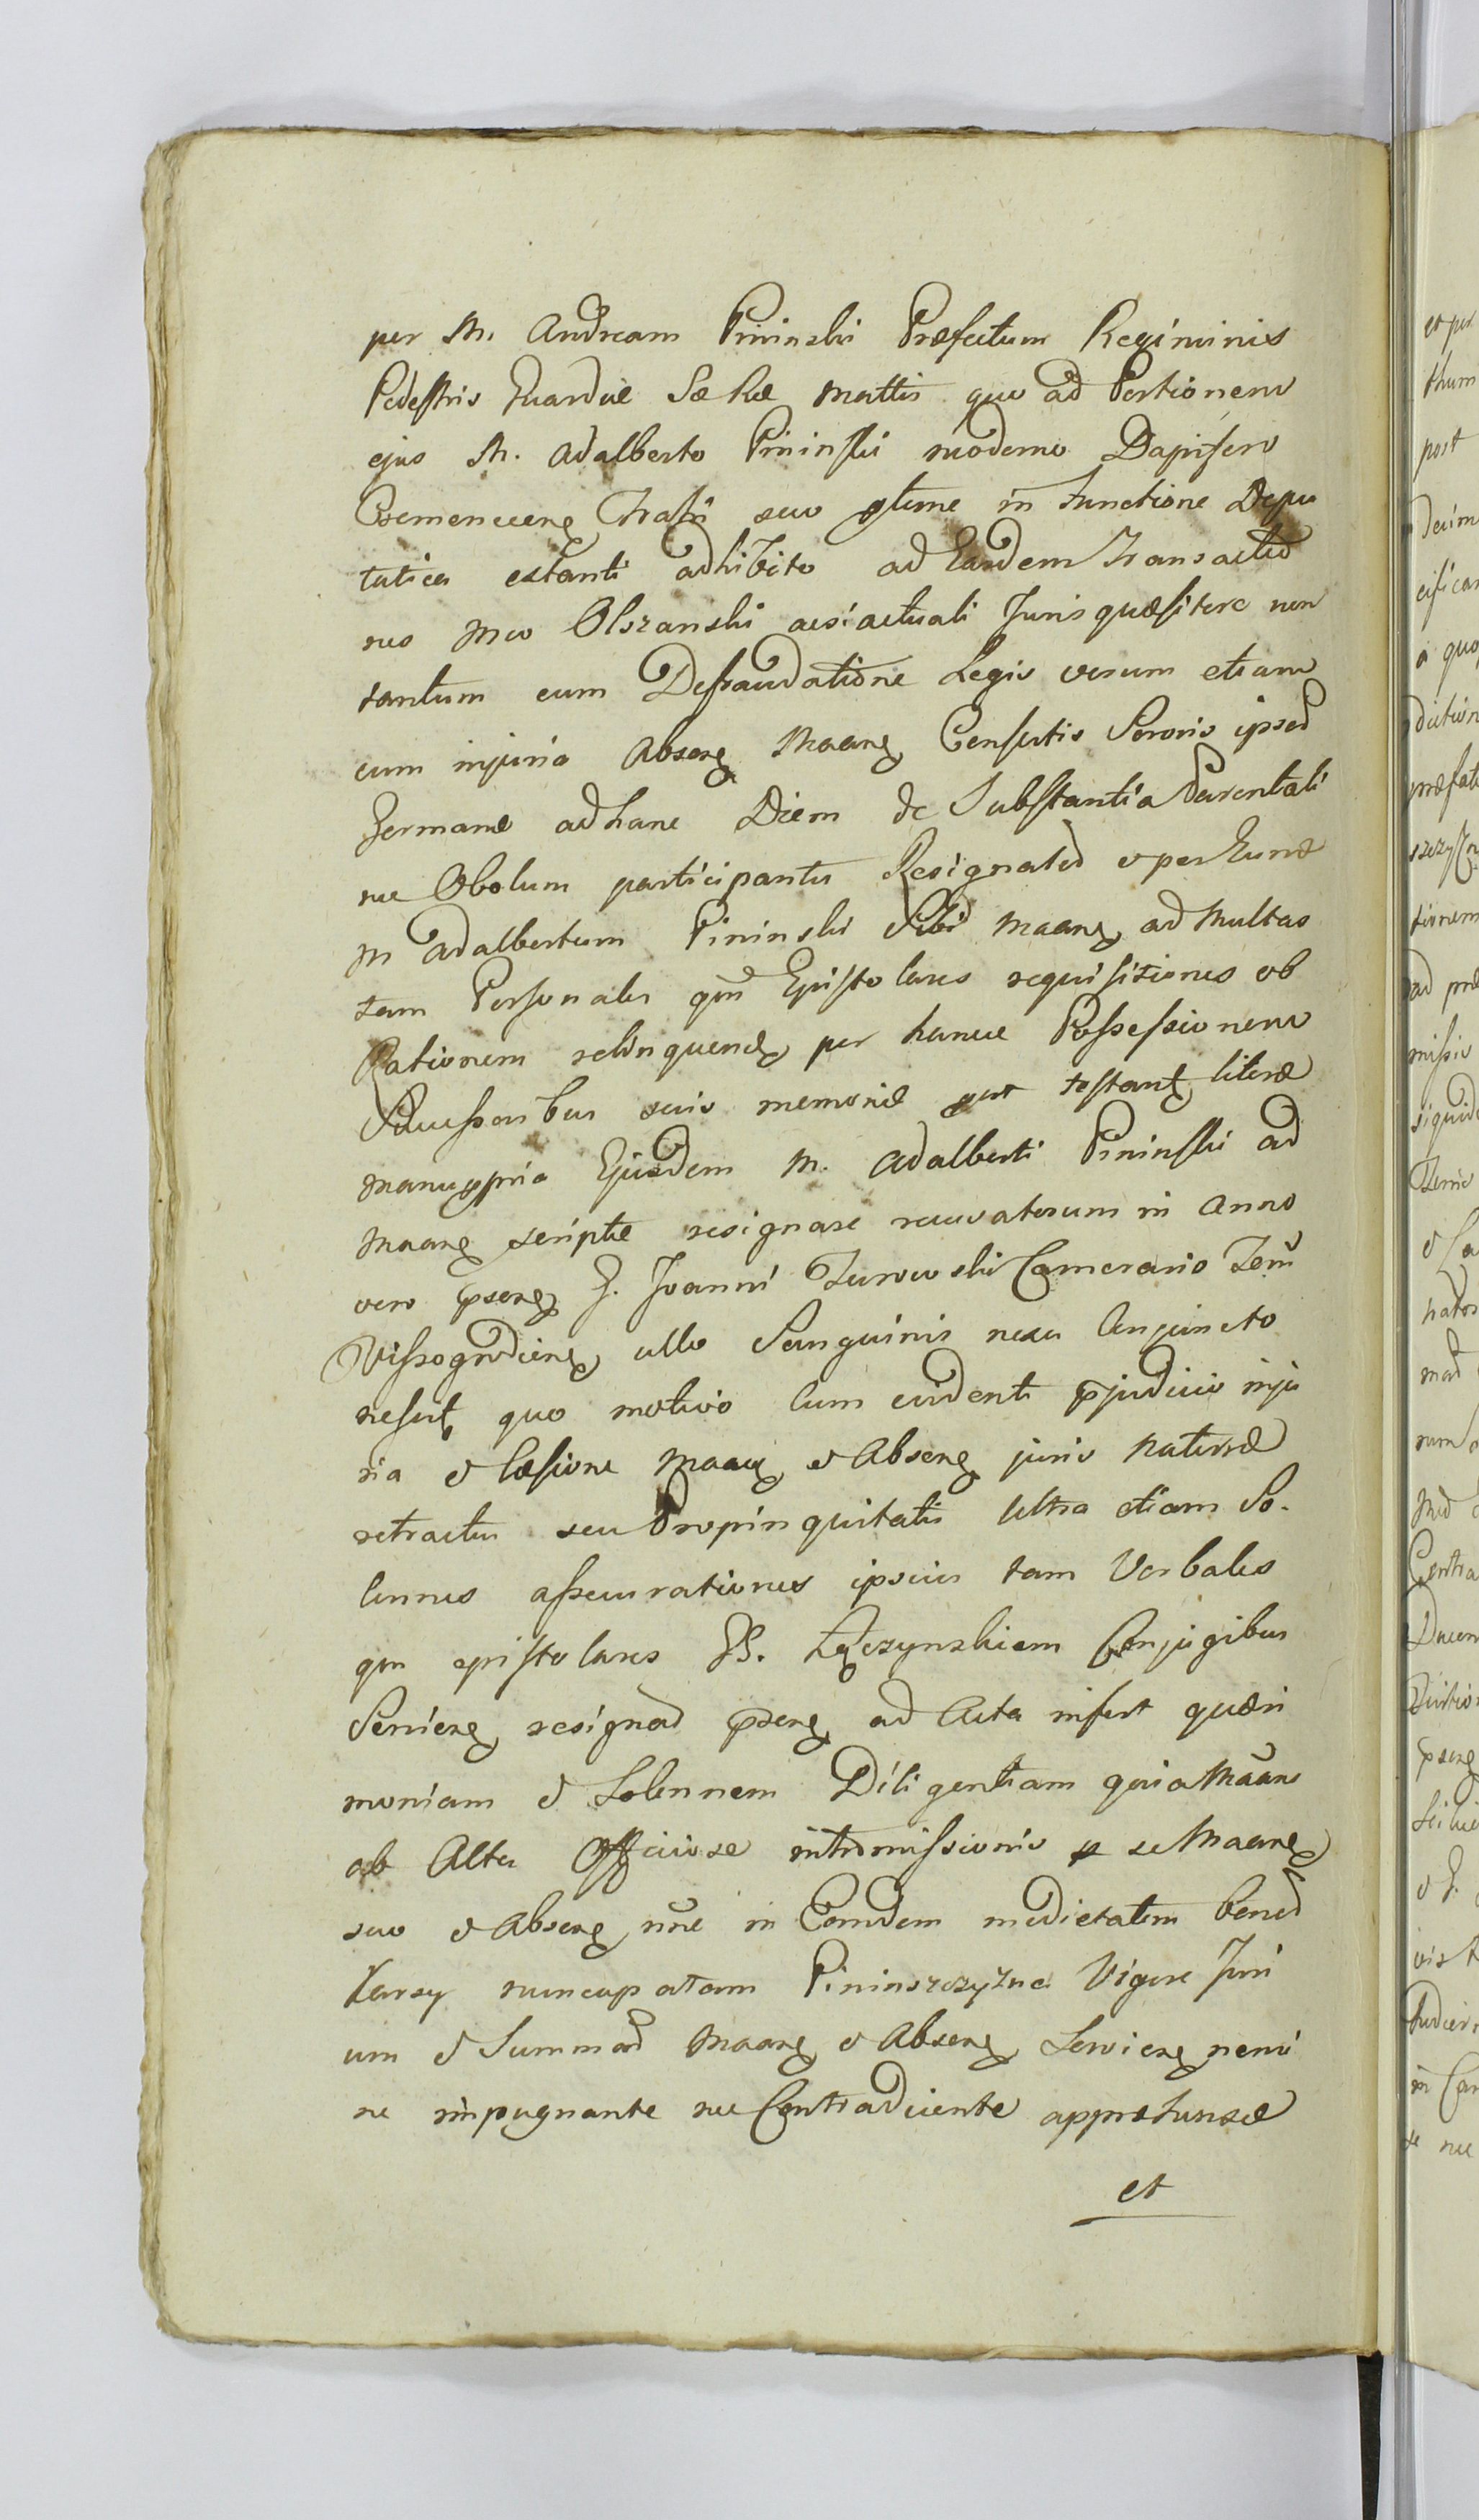 per M. Andream Pininski Præfectum Regiminis
Pedestris Guardiæ Sæ Ræ Mattis quo ad Portionem
ejus M. Adalberto Pininski moderno Dapifero
Cremenecen Fratri suo tume in functione Depu
tatica extanti adhibito ad Eandem Transactio
neo Mco Olszanski acsi actuali Juris quæsitore non
tantum cum Defraudatione Legis verum etiam
cum injuria Absen Maan Consortis Sororis ipso
Germanæ ad hanc Diem de Substantia Parentali
nec Obolum participantis Resignato et per Eund
M Adalbertum Pininski Sibi Maan ad Multas
tam Personales qm Epistolares requisitiones ob
Rationem relinquend per hance Possessionem
Successoribus suis memoriæ prt testant literæ
manu ppria Ejusdem M. Adalberti Pininski ad
Maan scriptæ resignare recusatorum in Anno
vero psen G. Joanni Turowski Camerario Terr
Vissogrodien ullo Sanguinis nexu Conjuncto
nefert quo motivo Cum evidenti pjudicio inju
ria et læsione Maan et Absen juris naturæ
retractus seu Propinquitatis Ultra etiam So-
lennes assecurationes ipsius tam Verbales
qm epistolares GG. Łączynskiem Conjugibus
Servien resignad psen ad Acta infert quæri
moniam et Solennem Diligentiam quia Maans
ab Alta Officiose intromissionis p se Maane
suo et Absen nne in Eamdem medietatem bono
Karsy nuncupatam Pininszczyzna Vigore Juri
um et Summad Maan et Absen Servien nemi
ne impugnante nec Contradicente apprehensæ
et